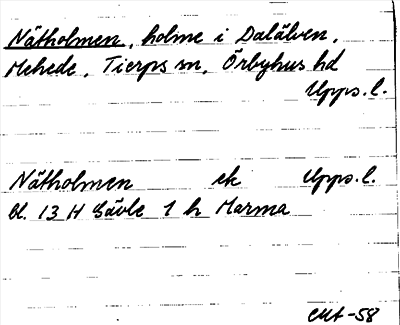 Nätholmen, holme i Dalälven,
Mehede, Tierps sn, Örbyhus hd
Upps. l.
Nätholmen ek Upps. l.
bl. 13 H Gävle 1 h Marma
-58